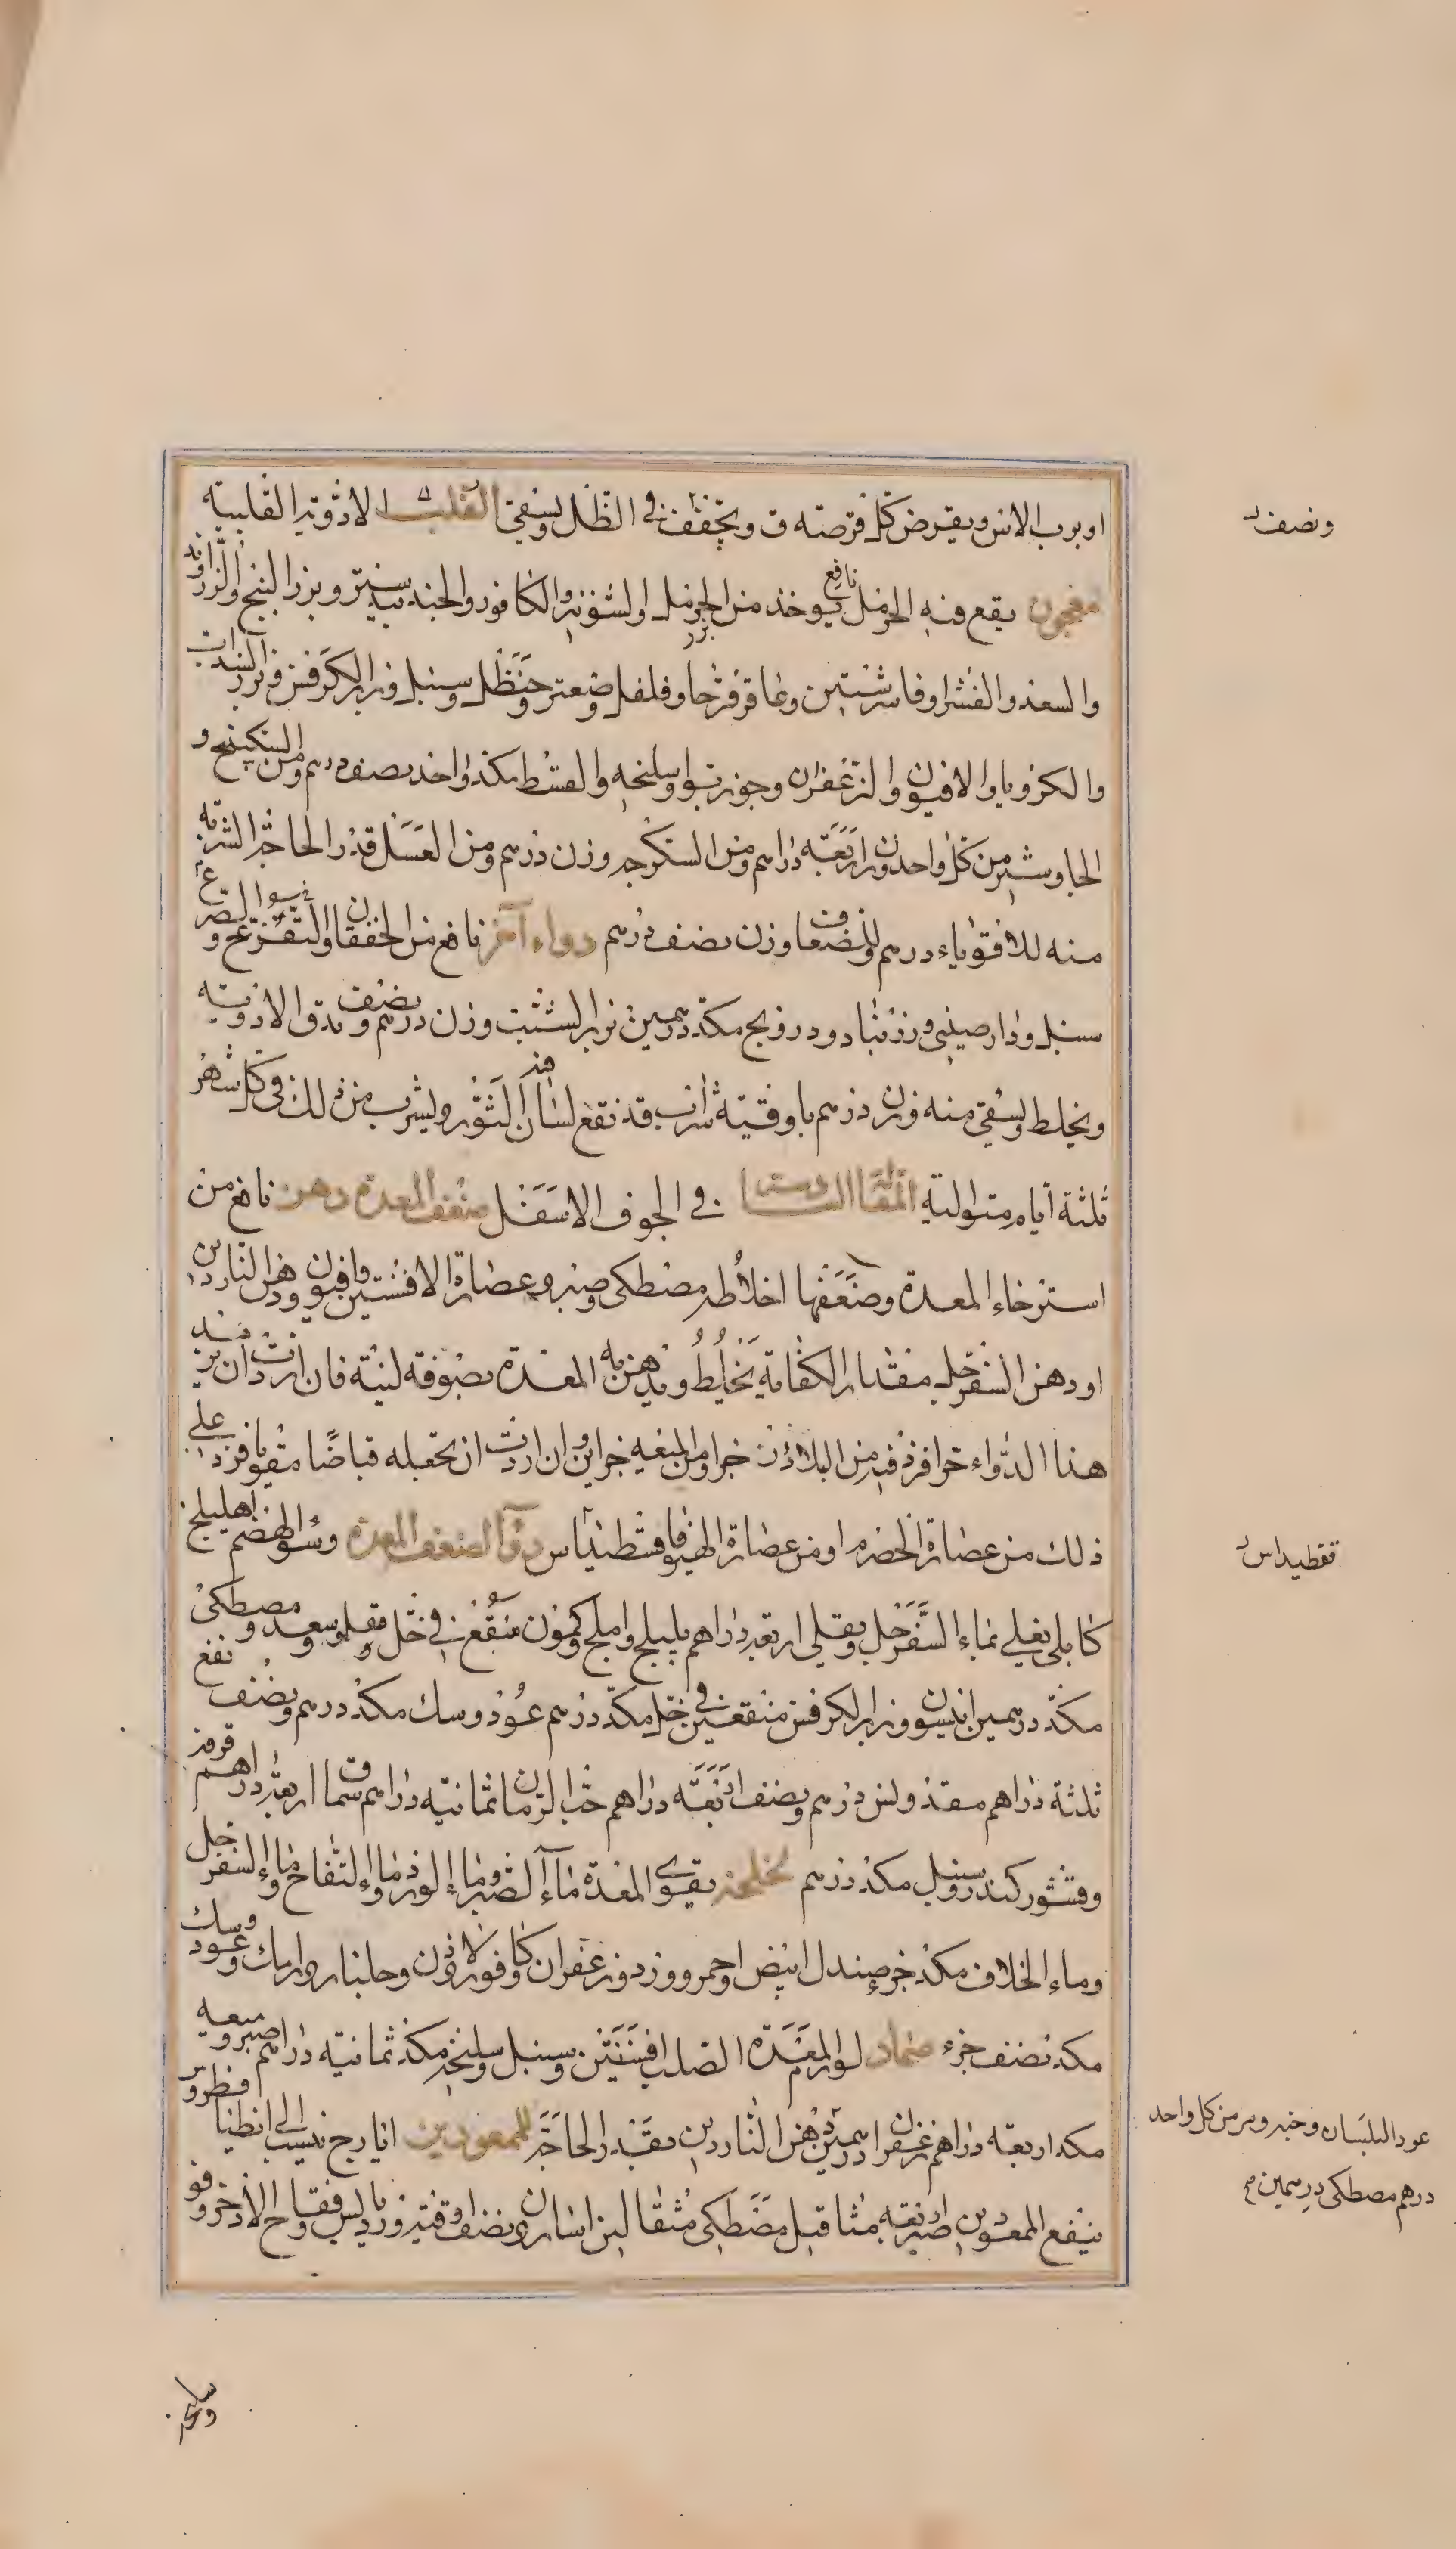 او برب الاس ويقرض كل قرصة ق ويجفف في الظل ويسقى القلب الادوية القلبية
ونصف
معجون يقع فيه الحرمل نافع يوخذ من الحرمل بزر او لشونيز والكافور والجندبيدستر وبزر البنج والزراوند
والسعد والفشرا وفاشرشتين وعاقرقرحا وفلفل وصعتر وحنظل وسنبل وبزر الكرفس وبزر السذاب
والكرويا والافيون والزعفران وجوزبوا وسليخه والقسط مكد واحد نصف درهم ومن السكبينج و
الجاوشير من كل واحد وزن اربعة دراهم ومن السكر جه وزن درهم ومن العسل قدر الحاجة الشربه
منه للاقوياء درهم وللضعفا وزن نصف درهم دواء آخر نافع من الخفقان والتفزع
سنبل ودارصيني وزرنباد ودرونج مكد درهمين بزر الشبت وزن درهم ونصف يدق الادوية
ويخلط ويسقى منه وزن درهم باوقية شراب قد نقع لسان الثور ويشرب من ذلك في كل شهر
ثلثة ايام متوالية المقالة السادسة في الجوف الاسفل ضعف المعدة دهن نافع من
استرخاء المعدة وضعفها اخلاطه مصطكى وصبر وعصارة الافسنتين وافيون ودهن الناردين
او دهن السفرجل مقدار الكفاية يخلط ويدهن به المعدة بصوفة لينة فان اردت ان تزيد
هذا الدواء حرا فزد فيه من البلاذر جزا ومن الميعه جزاين وان اردت ان تجعله قباضا مقويا فزد على
ذلك من عصارة الحصرم او من عصارة الهيوفاقسطيداس دواء لضعف المعدة وسوء الهضم اهليلج
قفطيداس
كابلى يغلي بماء السفرجل ويقلى اربعة دراهم بليلج واملج وكمون منقع في خل مقلو وسعد ومصطكى
مكد درهمين انيسون وبزر الكرفس منقعين في خل مكد درهم عود وسك مكد درهم ونصف نقع
ثلثة دراهم مقدونس درهم ونصف اربعة دراهم حب الرمان ثمانية دراهم سماق اربعة دراهم
وقشور كندر وسنبل مكد درهم لخلخة يقوى المعدة ماء الصبر وماء الورد وماء التفاح وماء السفرجل
وماء الخلاف مكد جزء صندل ابيض واحمر وورد وزعفران وكافور ولاذن وجلنار ورامك وعود وسك
مكد نصف جزء ضماد لورم المعدة الصلب افسنتين وسنبل وسليخه مكد ثمانية دراهم صبر وميعه
مكد اربعة دراهم زعفران درهمين دهن الناردين بقدر الحاجة للممعودين ايارج ينسب الى انطيا
عود البلسان وصبر ومر من كل واحد
درهم مصطكى درهمين صح
ينفع الممعودين صبر اربعة مثاقيل مصطكى مثقالين اسارون نصف اوقية ورد يابس وفقاح الاذخر وقو
وسليخه